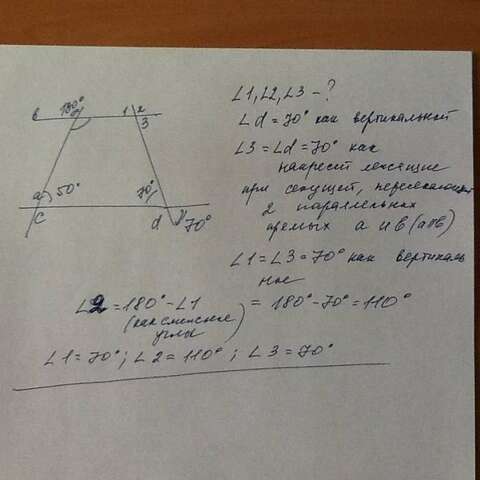 ∠1,∠2,∠3 - ?
∠d = 70° как вертикальной
∠3 = ∠d = 70° как
накрест лежащие
при секущей, пересекающей
2 параллельных
прямых a и в (a∥в)
∠1 = ∠3 = 70° как вертикаль
ные
∠2 = 180° - ∠1 = 180° - 70° = 110°
(как смежные
углы)
∠1 = 70°; ∠2 = 110°; ∠3 = 70°
в 130° 1 2
3
a 50° 70°
c d 70°